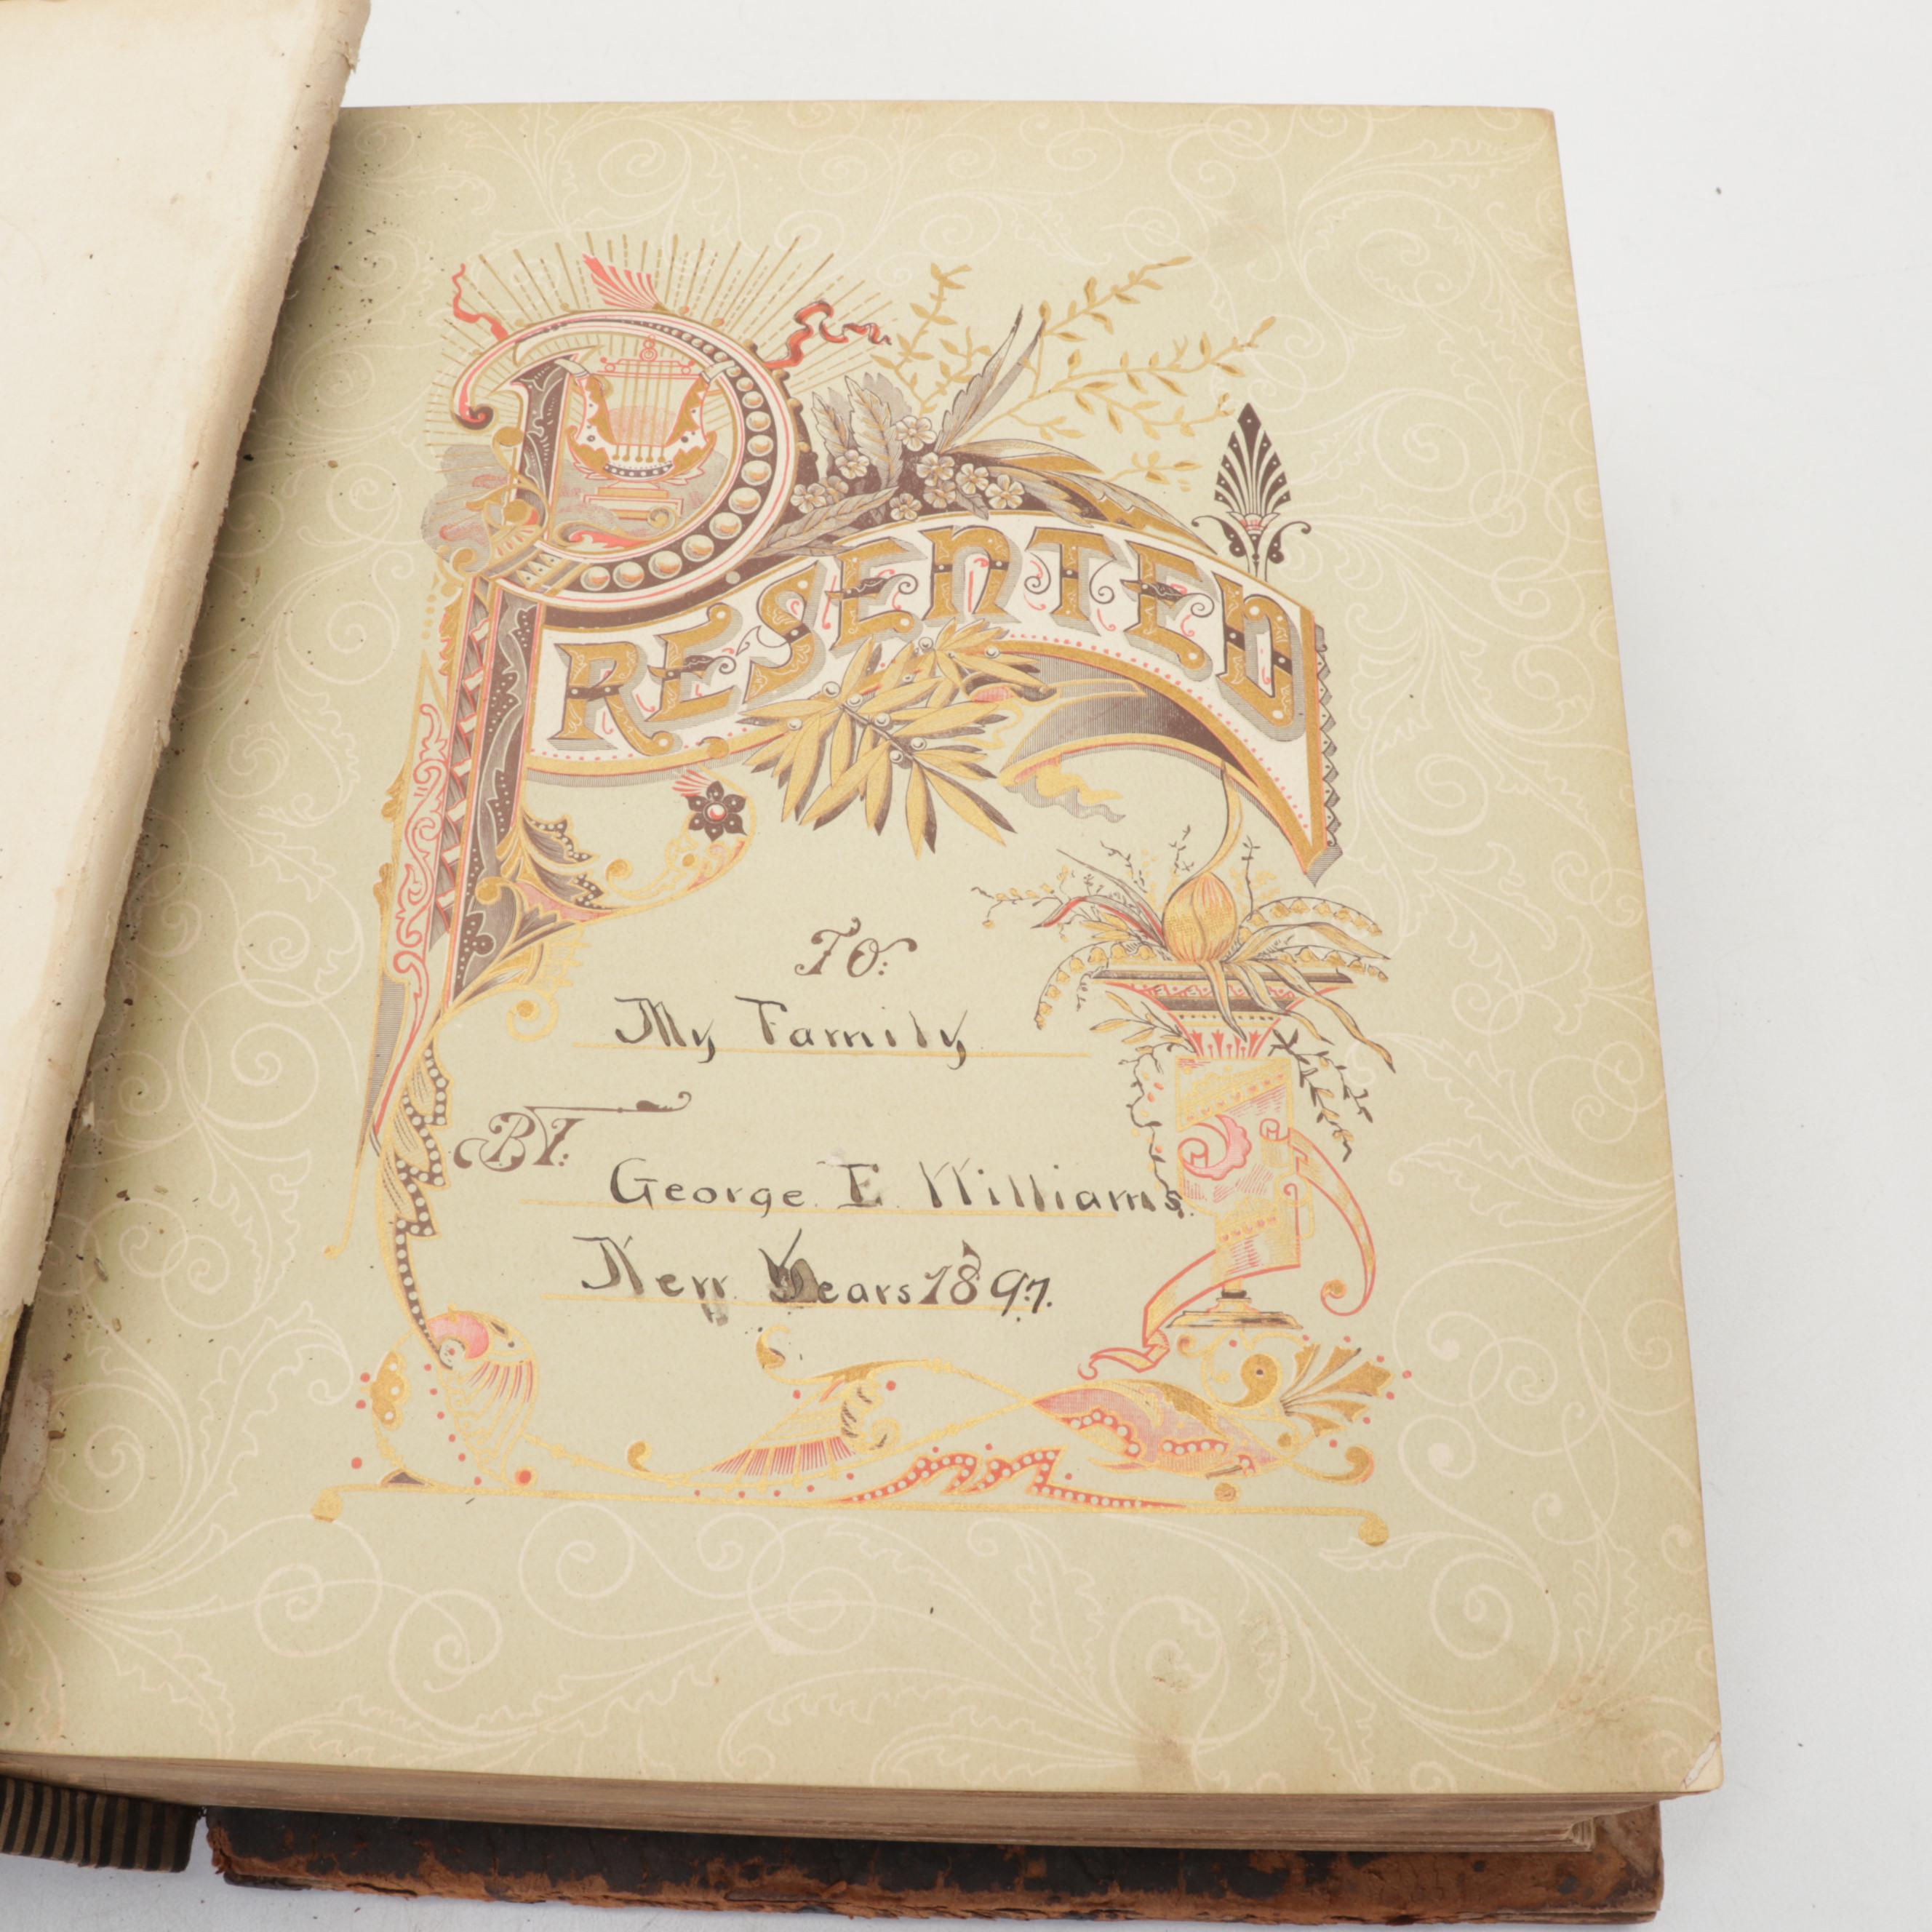 PRESENTED
TO:
My Family
BY:
George E Williams.
New Years 1897.